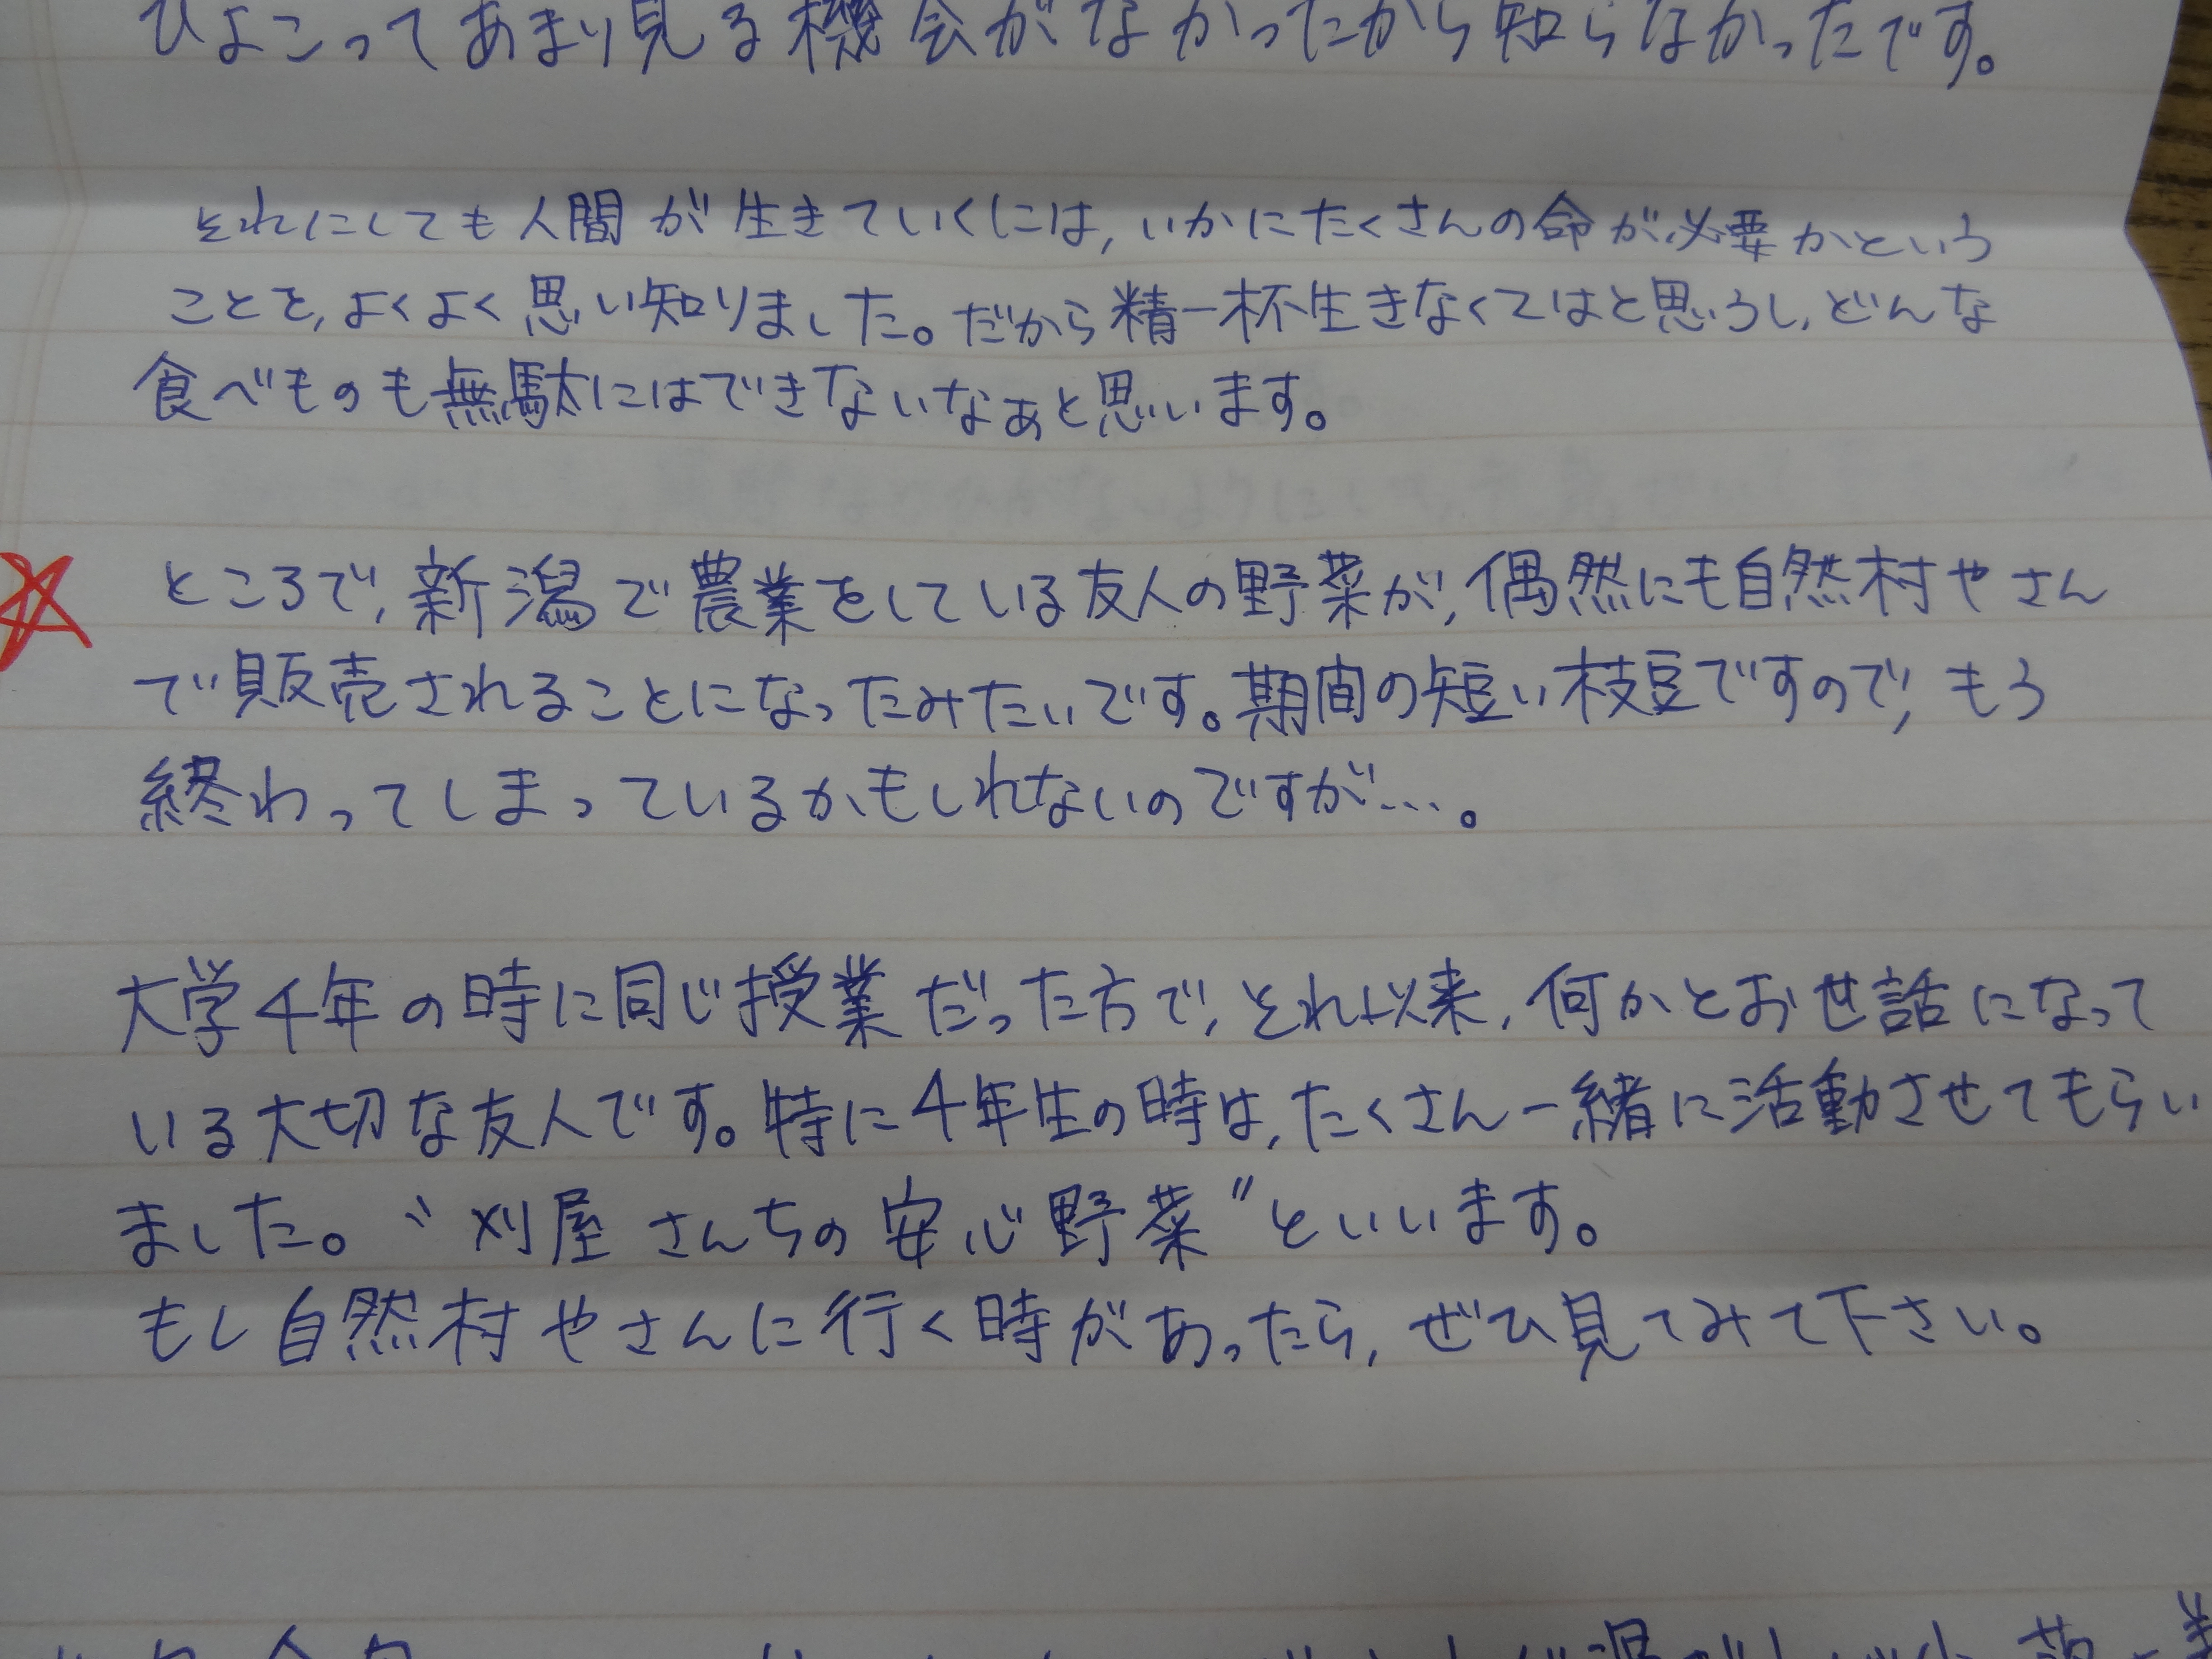 ひよこってあまり見る機会がなかったから知らなかったです。
それにしても人間が生きていくには,いかにたくさんの命が必要かという
ことを,よくよく思い知りました。だから精一杯生きなくてはと思うし,どんな
食べものも無駄にはできないなぁと思います。
ところで,新潟で農業をしている友人の野菜が,偶然にも自然村やさん
で販売されることになったみたいです。期間の短い枝豆ですので,もう
終わってしまっているかもしれないのですが…。
大学4年の時に同じ授業だった方で,それ以来,何かとお世話になって
いる大切な友人です。特に4年生の時は,たくさん一緒に活動させてもらい
ました。〝刈屋さんちの安心野菜〟といいます。
もし自然村やさんに行く時があったら,ぜひ見てみて下さい。